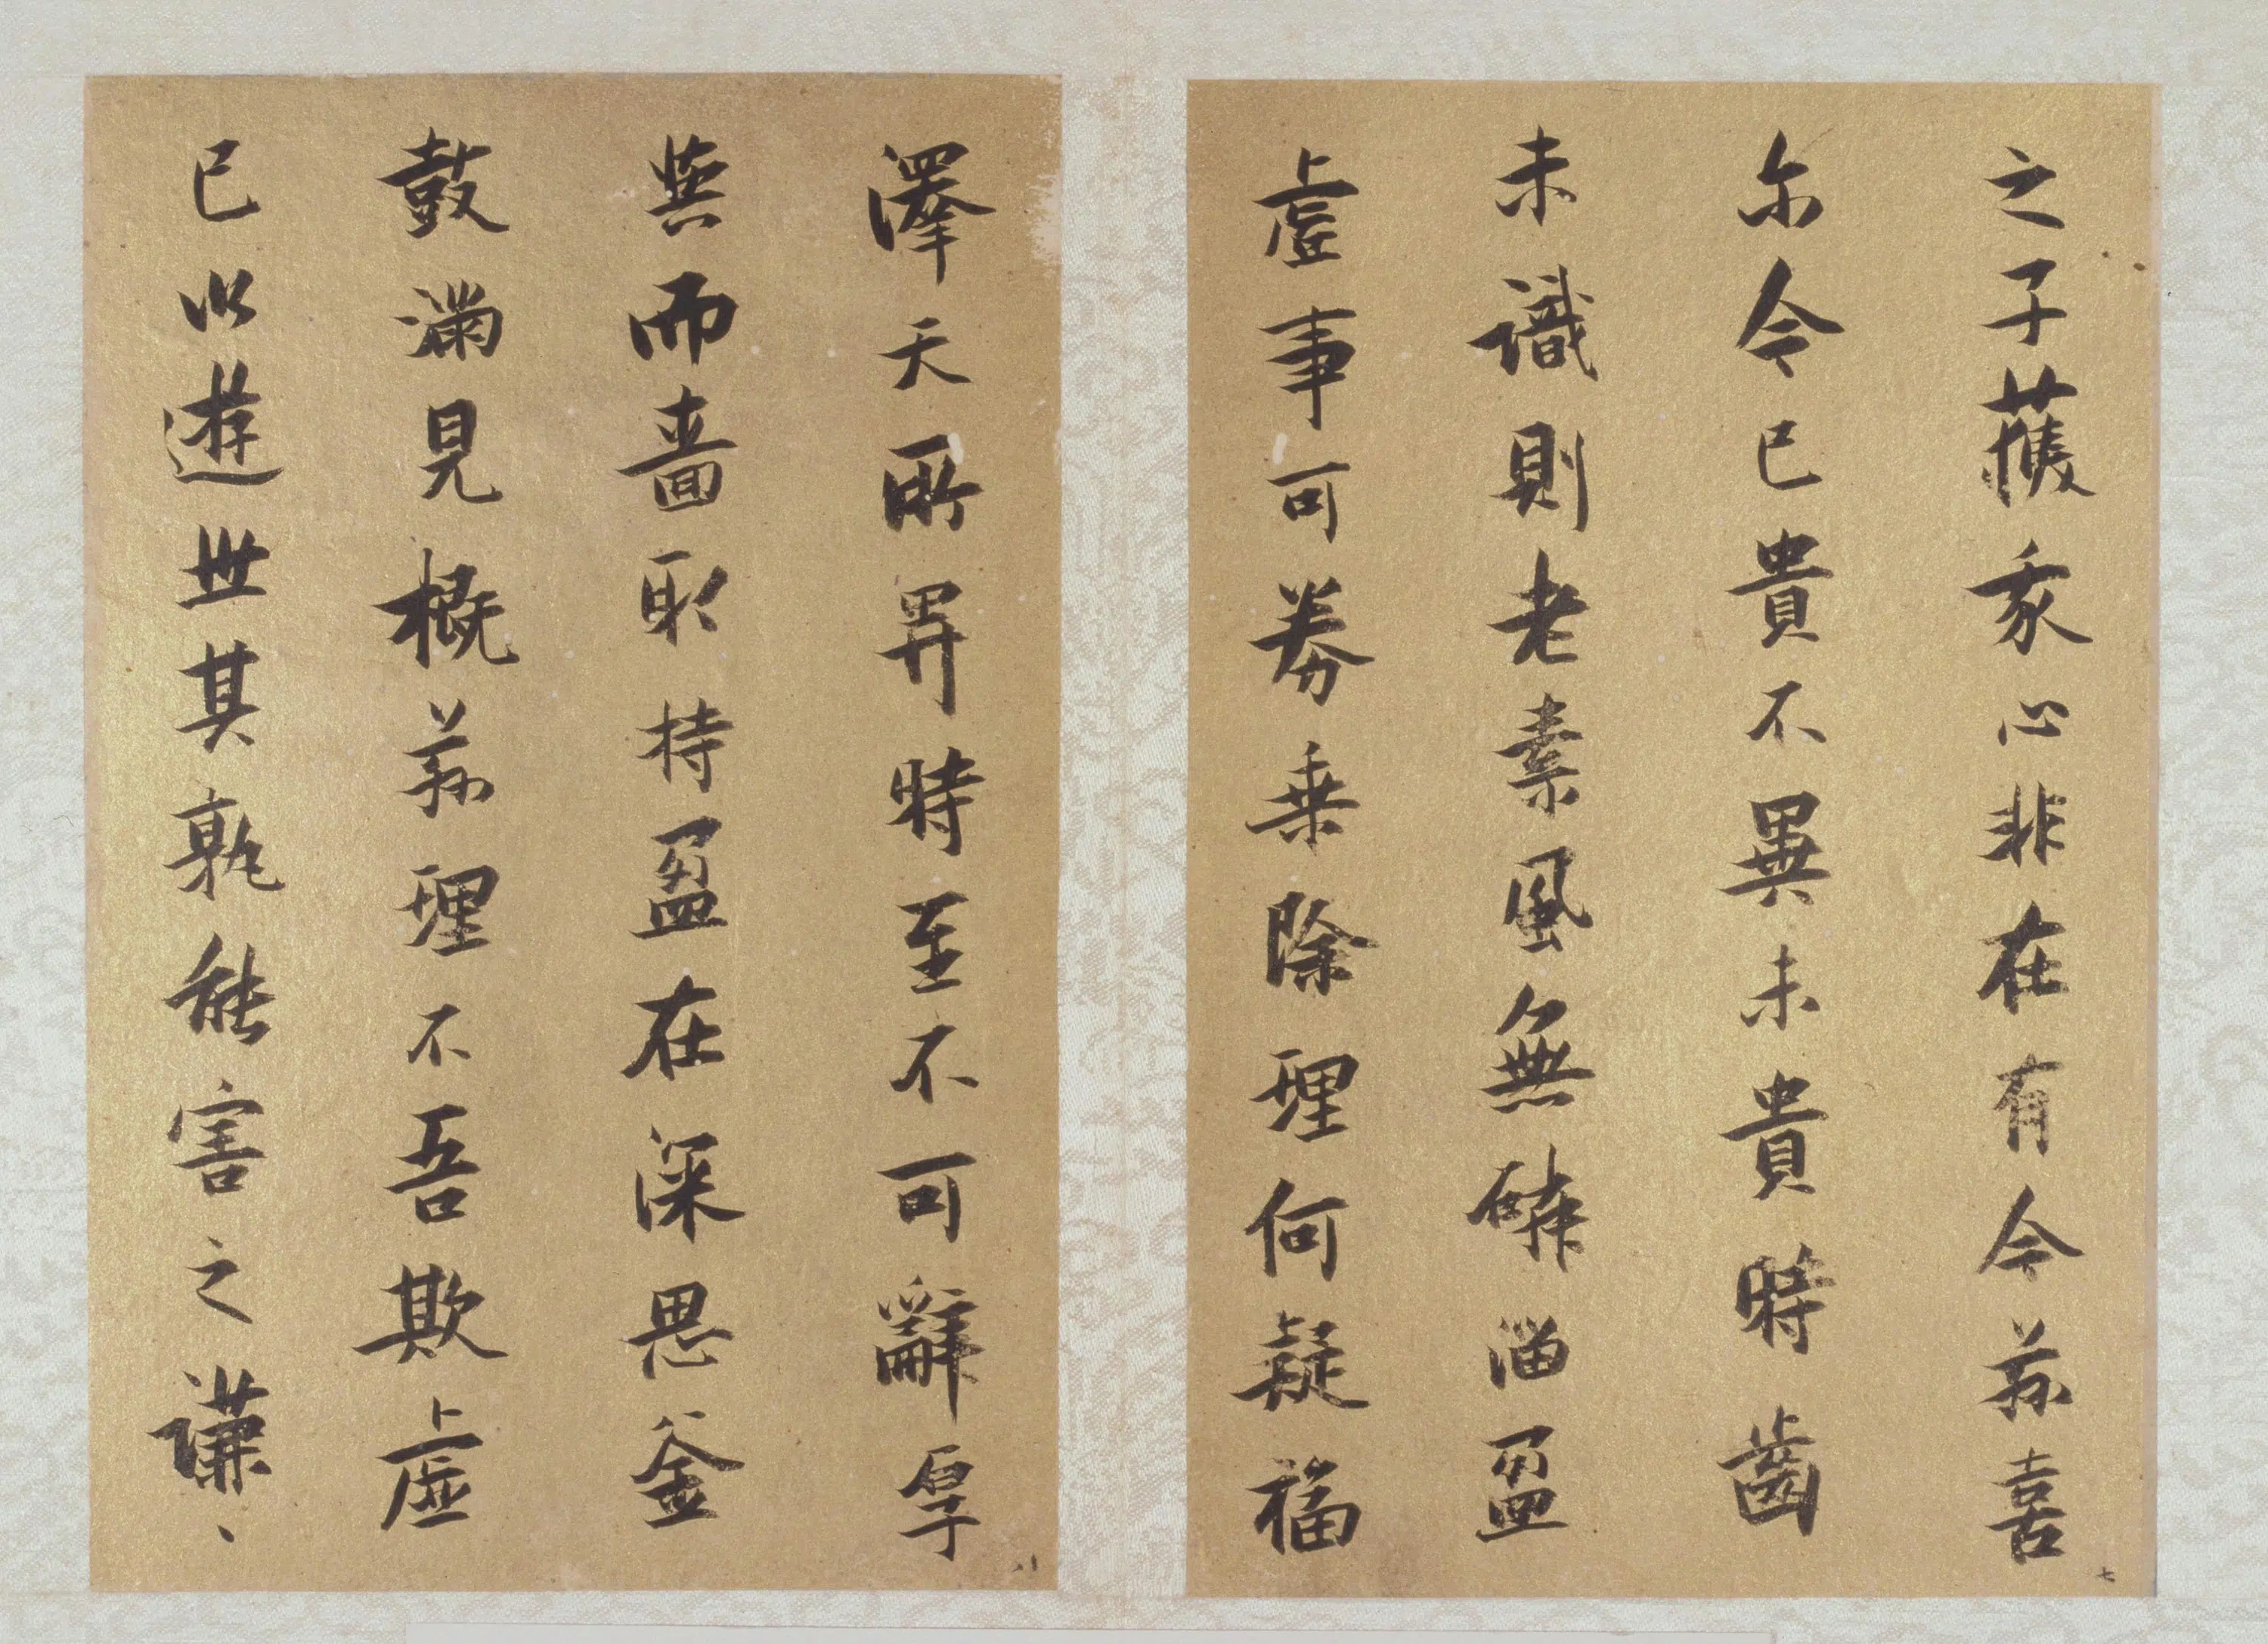 之子獲我心非在有今茲喜
尔今已貴不異未貴時齒
未識則老素風無磷淄盈
虛事可券乘除理何疑福
七
澤天所畀時至不可辭厚
與而嗇取持盈在深思釜
鼓滿見概茲理不吾欺虛
己以遊世其孰能害之謙、
八